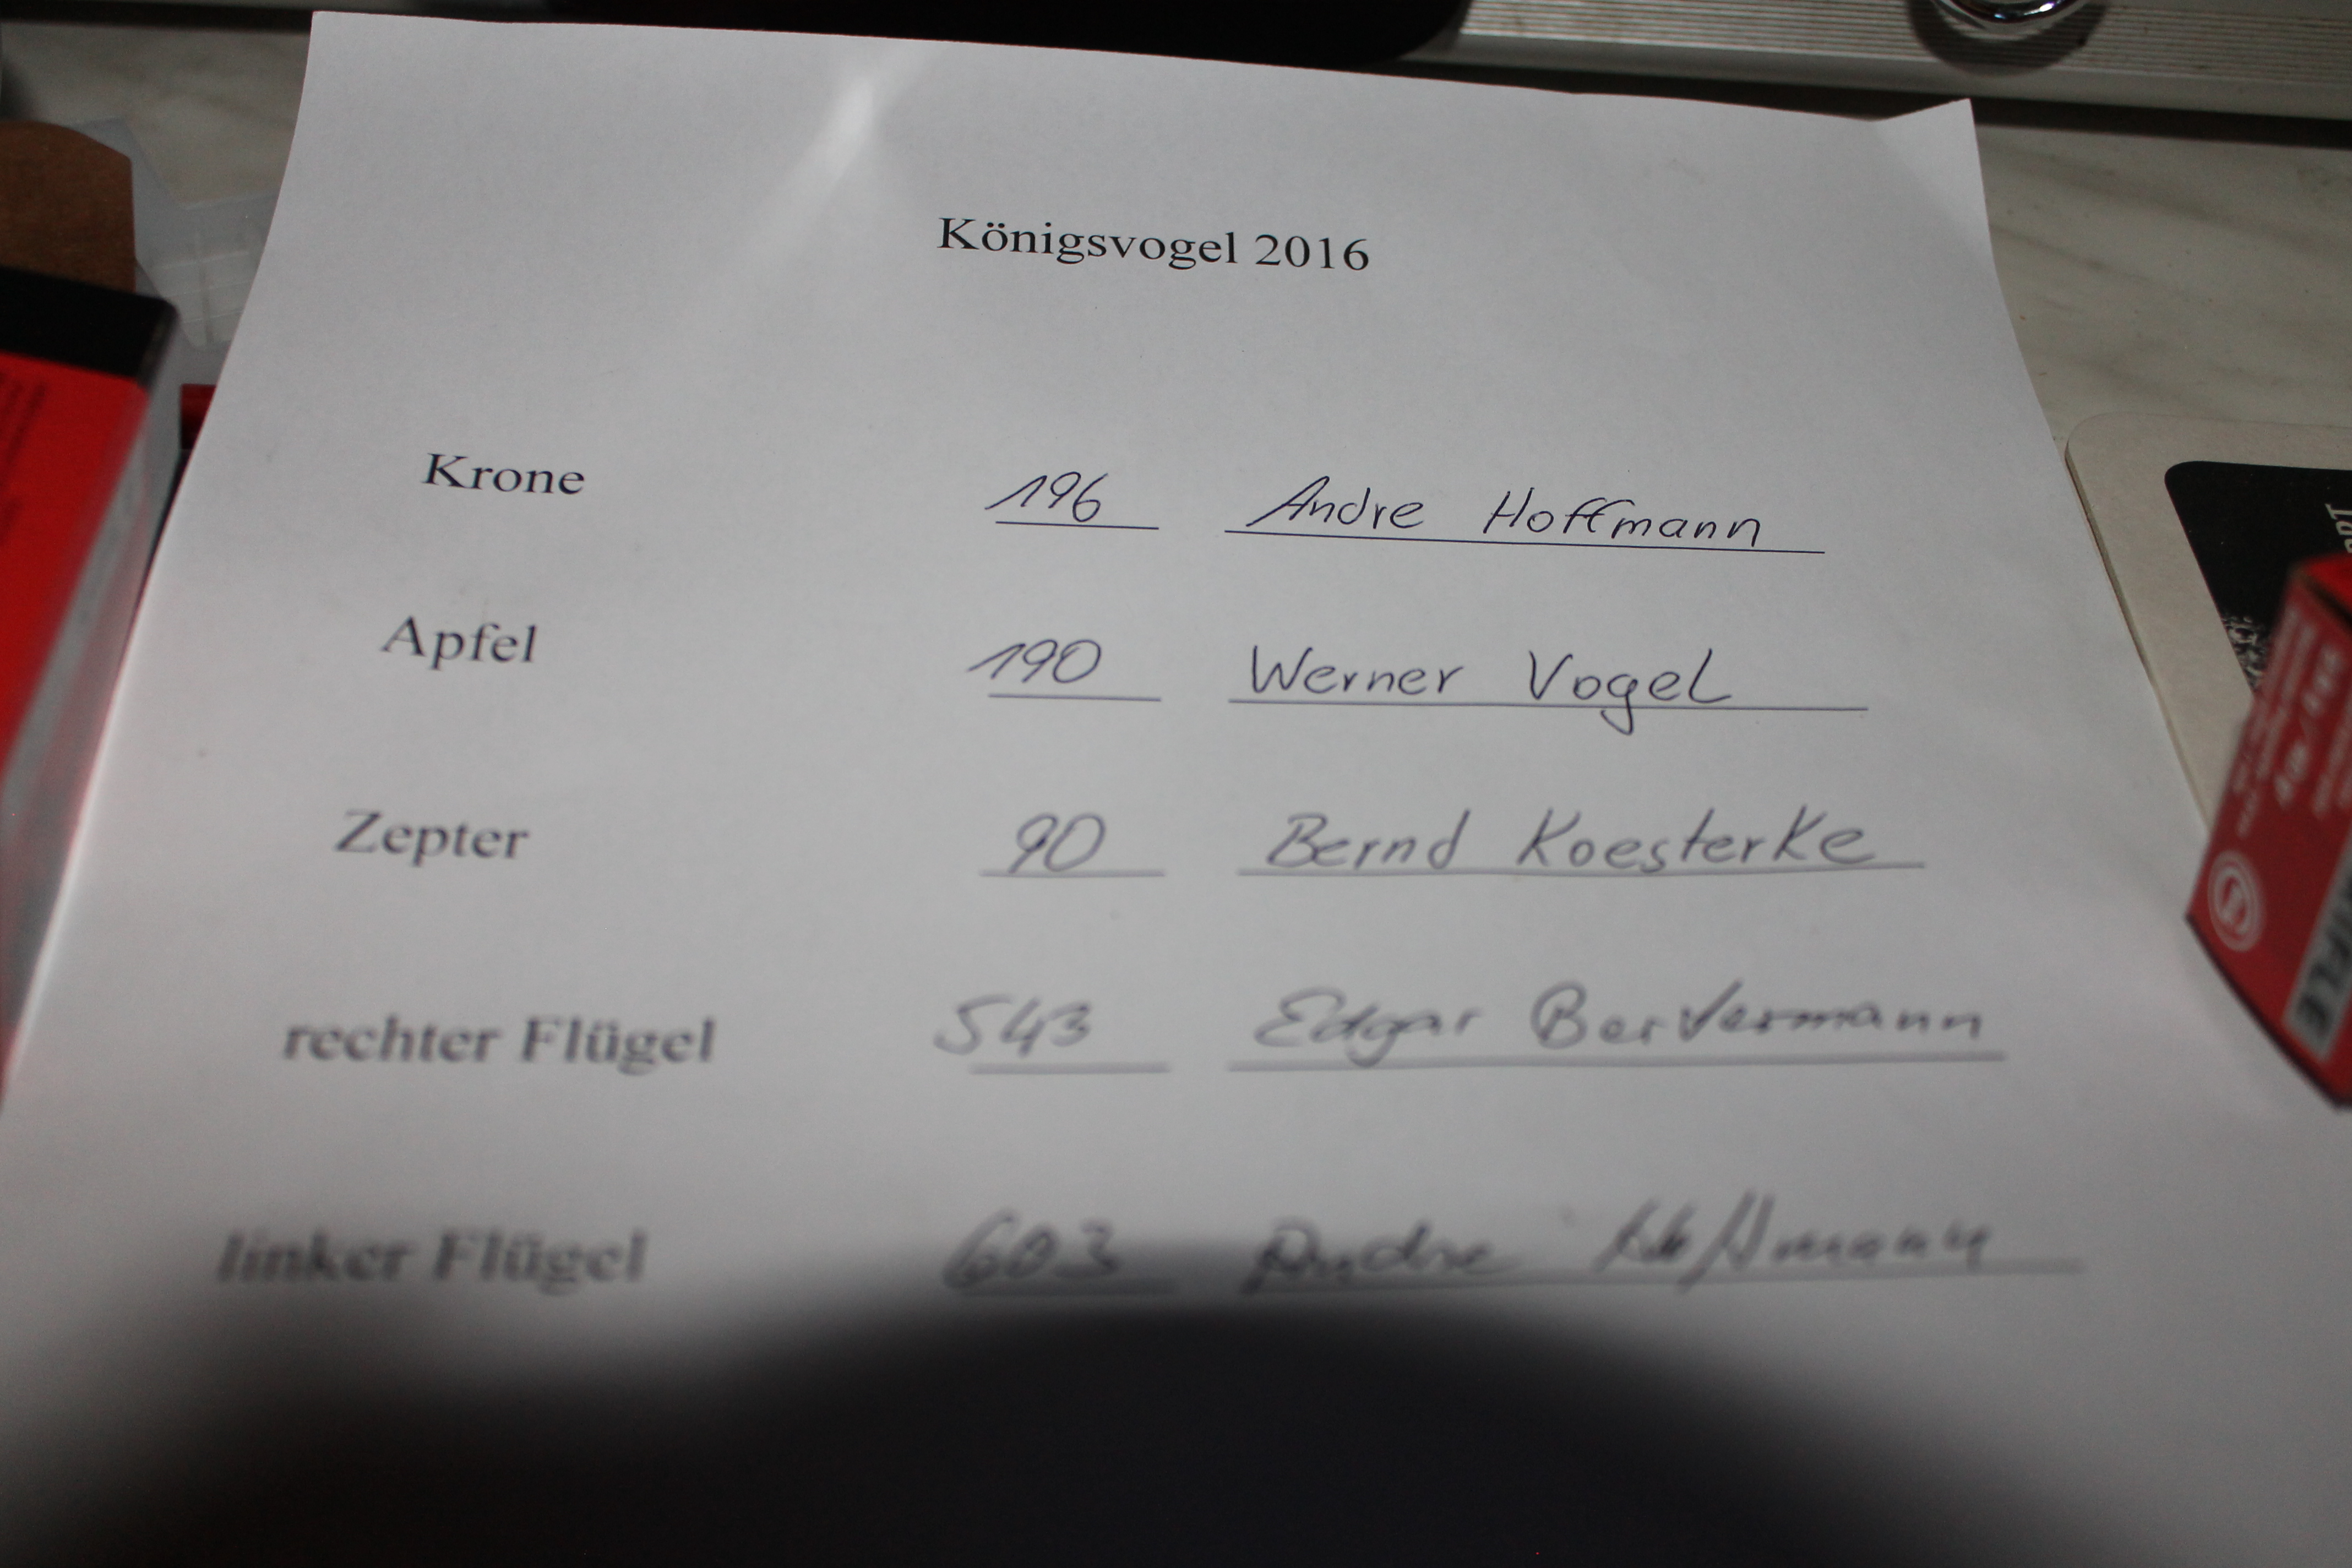 Königsvogel 2016
Krone 196 Andre Hoffmann
Apfel 190 Werner Vogel
Zepter 90 Bernd Koesterke
rechter Flügel 543 Edgar
linker Flügel 603 Andre Hoffmann